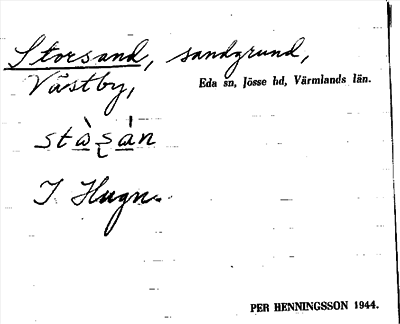 Storsand, sandgrund,
Västby,
Eda sn, Jösse hd, Värmlands län.
stàs̨án
I Hugn.
PER HENNINGSSON 1944.